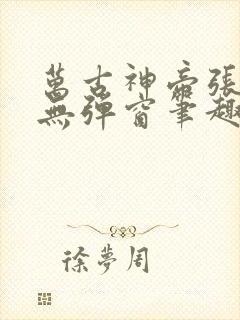 萬古神帝張
無彈窗筆趣
徐夢周